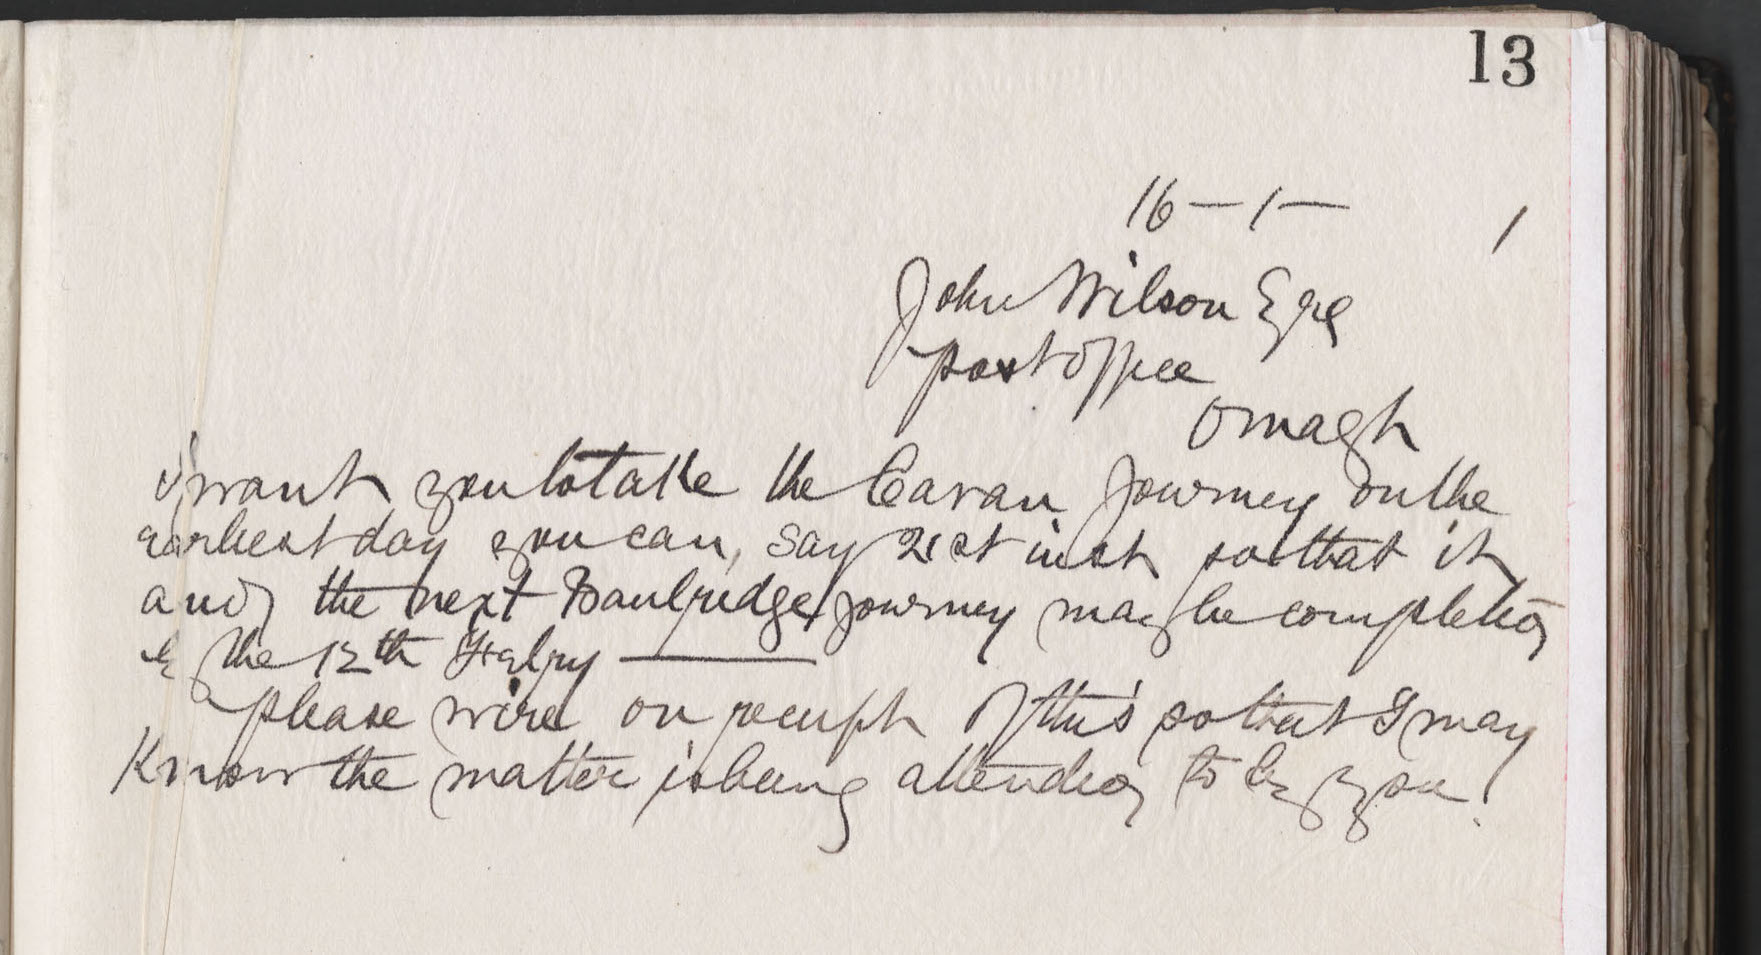 13
16 - 1 -
John Wilson Esqre
post office
Omagh
I want you to take the Cavan Journey on the
earliest day you can, say 21st inst so that it
and the next Banbridge journey may be completed
by the 12th Febry
please wire on receipt of this so that I may
Know the matter is being attended to by you.